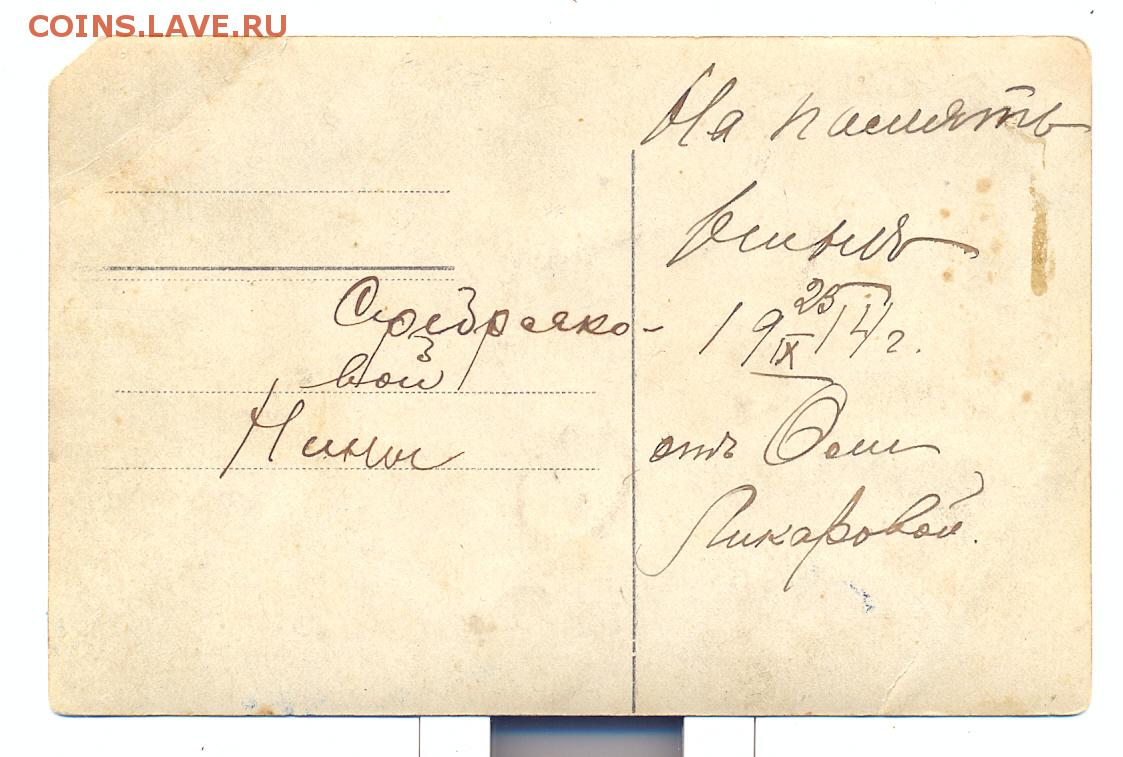 COINS.LAVE.RU
Серебряко-
вой
Нины
На память
25
19 IX 14 г.
отъ Оли
Ликаровой.